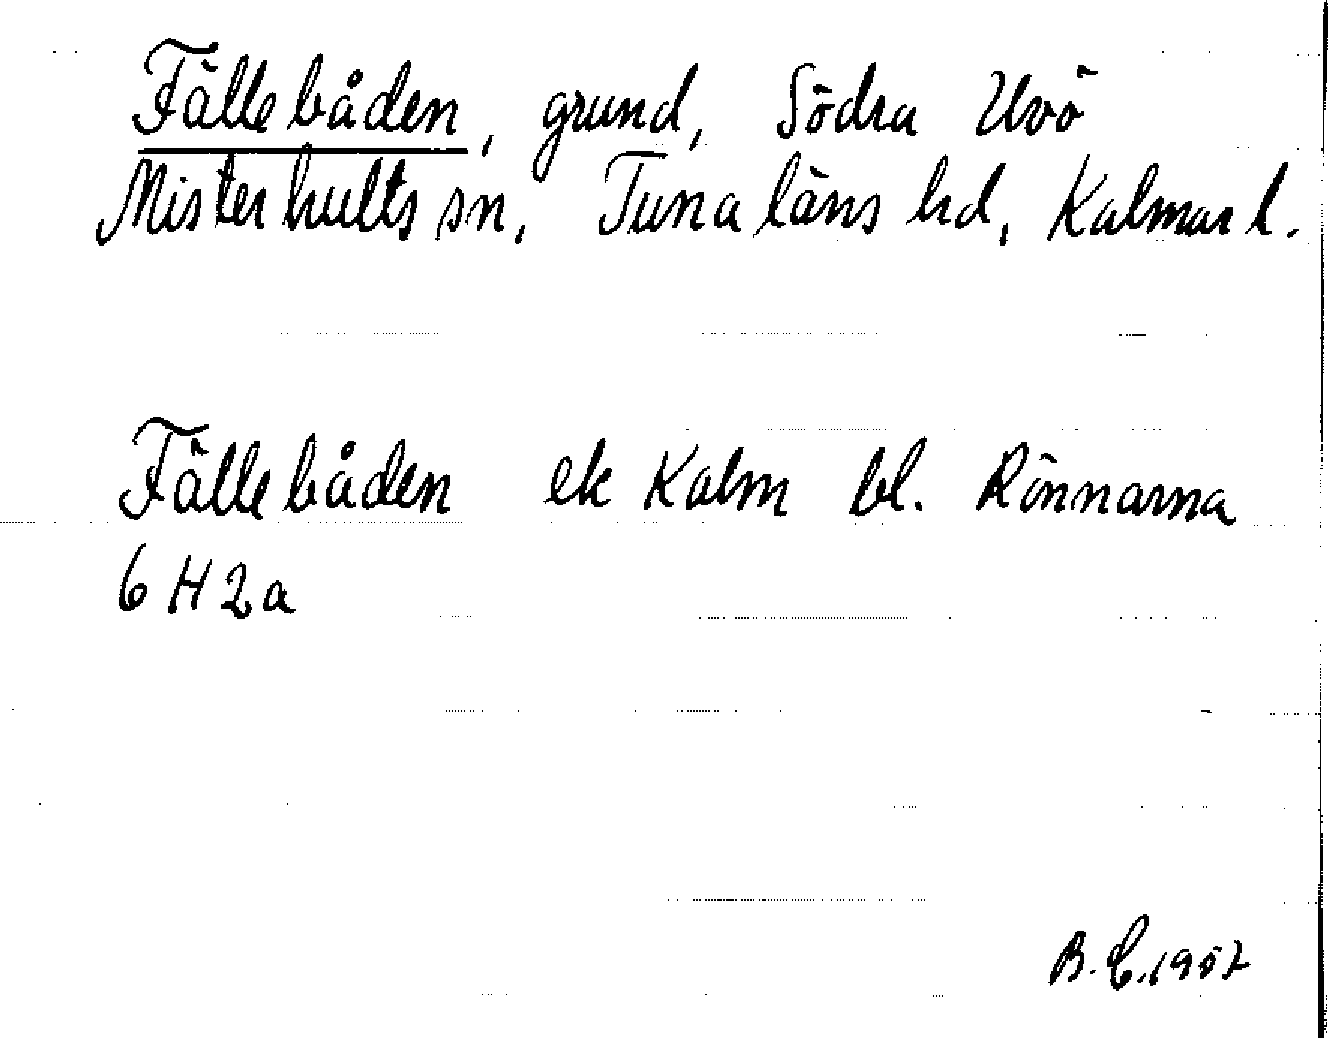 Fällebåden, grund, Södra Uvö
Misterhults sn, Tunaläns hd, Kalmar l.
Fällebåden ek Kalm bl. Rönnarna
6 H 2 a
B. C. 1957